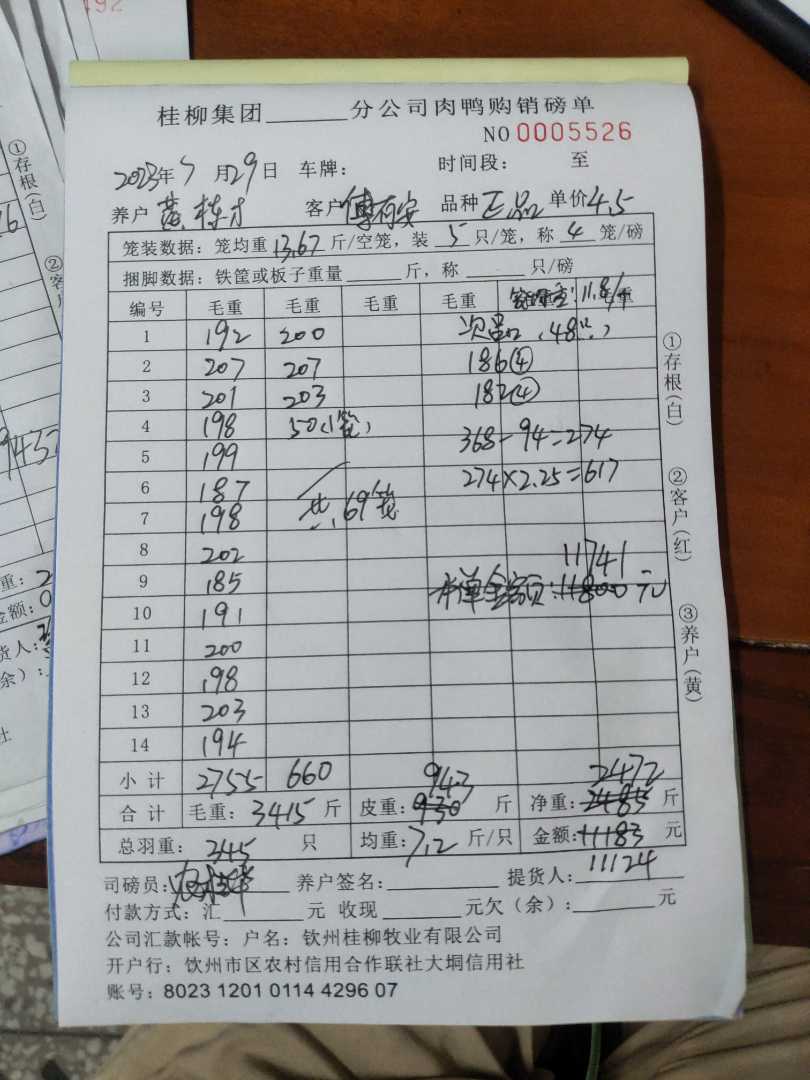 桂柳集团______分公司肉鸭购销磅单
NO 0005526
2023年7月29日 车牌： 时间段： 至
养户 黄栋才 客户 傅有安 品种 正品 单价4.5
笼装数据：笼均重 13.67 斤/空笼，装 5 只/笼，称 4 笼/磅
捆脚数据：铁筐或板子重量______斤，称______只/磅
编号 毛重 毛重 毛重 毛重 11.8/个
1 192 200 次品 48
2 207 207 186④
3 201 203 182④
4 198 50(1笼) 368-94=274
5 199 274×2.25=617
6 187
7 198 共69笼
8 202 11741
9 185 本单金额：11800元
10 191
11 200
12 198
13 203
14 194
小计 2755 660 943 2472
合计 毛重：3415斤 皮重：930 斤 净重：2485斤
总羽重：345 只 均重：7.2斤/只 金额：11183元
司磅员： 养户签名： 提货人：11124
付款方式：汇______元 收现______元欠（余）：______元
公司汇款帐号：户名：钦州桂柳牧业有限公司
开户行：饮州市区农村信用合作联社大垌信用社
账号：8023 1201 0114 4296 07
①存根(白)
②客户(红)
③养户(黄)
①存根(白)
②客